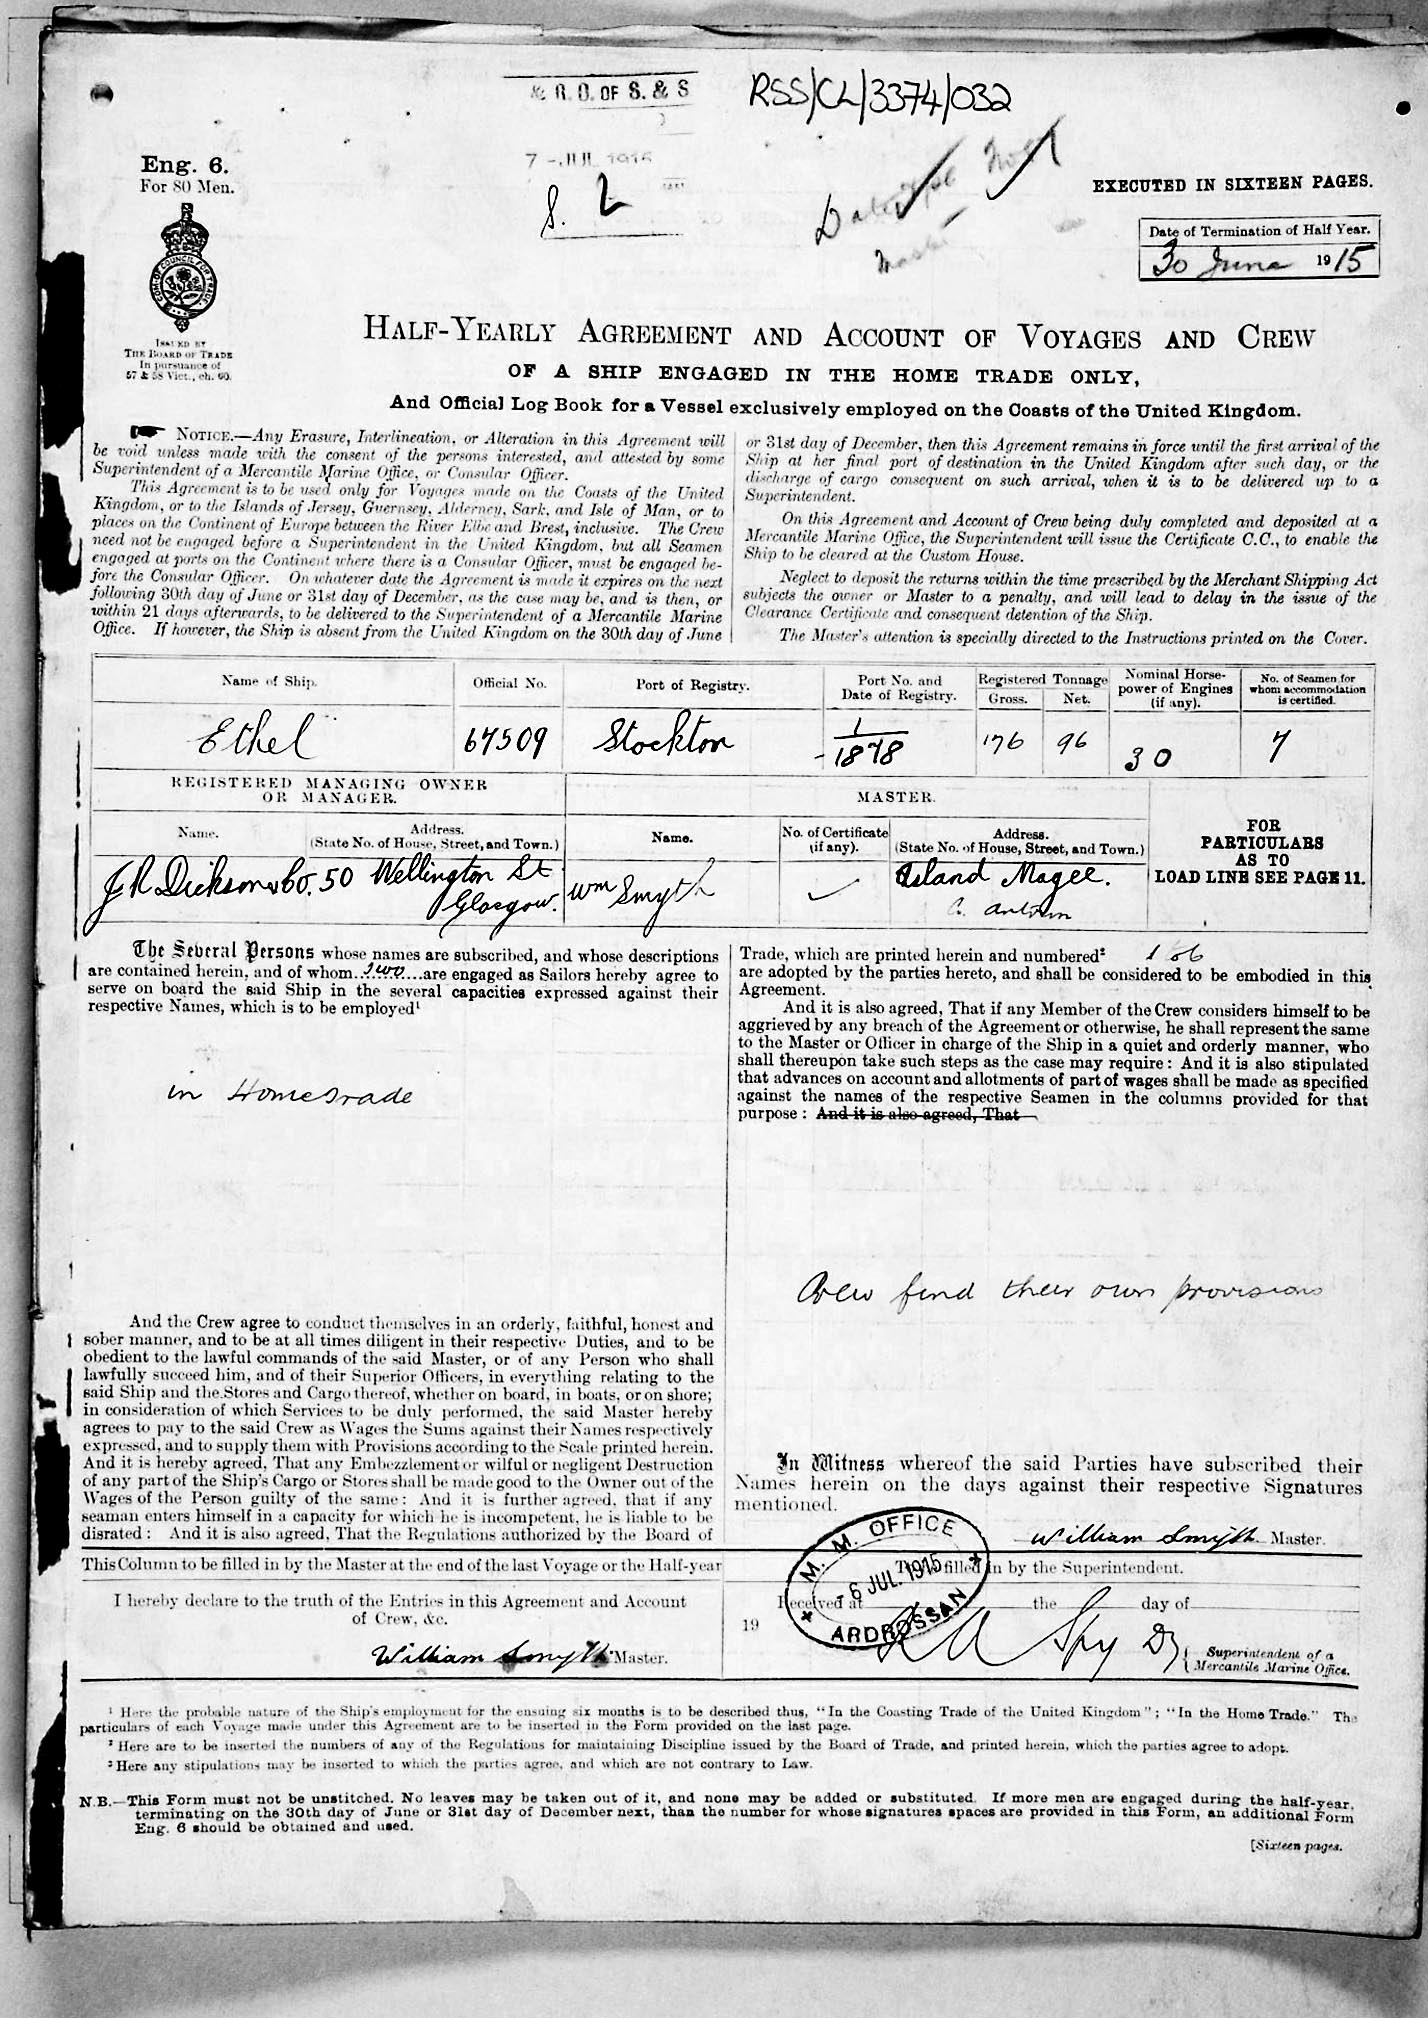 & R. O. OF S. & S
RSS/CL/3374/032
7 - JUL 1915
S. 2
Eng. 6.
For 80 Men.
EXECUTED IN SIXTEEN PAGES.
Date of Termination of Half Year.
30 June 1915
COM. OF COUNCIL FOR TRADE
ISSUED BY
THE BOARD OF TRADE
In pursuance of
57 & 58 Vict., ch. 60.
HALF-YEARLY AGREEMENT AND ACCOUNT OF VOYAGES AND CREW
OF A SHIP ENGAGED IN THE HOME TRADE ONLY,
And Official Log Book for a Vessel exclusively employed on the Coasts of the United Kingdom.
NOTICE.—Any Erasure, Interlineation, or Alteration in this Agreement will
be void unless made with the consent of the persons interested, and attested by some
Superintendent of a Mercantile Marine Office, or Consular Officer.
This Agreement is to be used only for Voyages made on the Coasts of the United
Kingdom, or to the Islands of Jersey, Guernsey, Alderney, Sark, and Isle of Man, or to
places on the Continent of Europe between the River Elbe and Brest, inclusive. The Crew
need not be engaged before a Superintendent in the United Kingdom, but all Seamen
engaged at ports on the Continent where there is a Consular Officer, must be engaged be-
fore the Consular Officer. On whatever date the Agreement is made it expires on the next
following 30th day of June or 31st day of December, as the case may be, and is then, or
within 21 days afterwards, to be delivered to the Superintendent of a Mercantile Marine
Office. If however, the Ship is absent from the United Kingdom on the 30th day of June
or 31st day of December, then this Agreement remains in force until the first arrival of the
Ship at her final port of destination in the United Kingdom after such day, or the
discharge of cargo consequent on such arrival, when it is to be delivered up to a
Superintendent.
On this Agreement and Account of Crew being duly completed and deposited at a
Mercantile Marine Office, the Superintendent will issue the Certificate C.C., to enable the
Ship to be cleared at the Custom House.
Neglect to deposit the returns within the time prescribed by the Merchant Shipping Act
subjects the owner or Master to a penalty, and will lead to delay in the issue of the
Clearance Certificate and consequent detention of the Ship.
The Master's attention is specially directed to the Instructions printed on the Cover.
Name of Ship. Official No. Port of Registry. Port No. and Date of Registry. Registered Tonnage Gross. Net. Nominal Horse-power of Engines (if any). No. of Seamen for whom accommodation is certified.
Ethel 67509 Stockton 1/1878 176 96 30 7
REGISTERED MANAGING OWNER
OR MANAGER.
MASTER.
Name. Address. (State No. of House, Street, and Town.) Name. No. of Certificate (if any). Address. (State No. of House, Street, and Town.)
FOR
PARTICULARS
AS TO
LOAD LINE SEE PAGE 11.
J R Dickson & Co. 50 Wellington St Wm Smyth Island Magee.
Glasgow. Co. Antrim
The Several Persons whose names are subscribed, and whose descriptions
are contained herein, and of whom two are engaged as Sailors hereby agree to
serve on board the said Ship in the several capacities expressed against their
respective Names, which is to be employed¹
in Home Trade
And the Crew agree to conduct themselves in an orderly, faithful, honest and
sober manner, and to be at all times diligent in their respective Duties, and to be
obedient to the lawful commands of the said Master, or of any Person who shall
lawfully succeed him, and of their Superior Officers, in everything relating to the
said Ship and the Stores and Cargo thereof, whether on board, in boats, or on shore;
in consideration of which Services to be duly performed, the said Master hereby
agrees to pay to the said Crew as Wages the Sums against their Names respectively
expressed, and to supply them with Provisions according to the Scale printed herein.
And it is hereby agreed, That any Embezzlement or wilful or negligent Destruction
of any part of the Ship's Cargo or Stores shall be made good to the Owner out of the
Wages of the Person guilty of the same: And it is further agreed, that if any
seaman enters himself in a capacity for which he is incompetent, he is liable to be
disrated: And it is also agreed, That the Regulations authorized by the Board of
Trade, which are printed herein and numbered² 1 to 6
are adopted by the parties hereto, and shall be considered to be embodied in this
Agreement.
And it is also agreed, That if any Member of the Crew considers himself to be
aggrieved by any breach of the Agreement or otherwise, he shall represent the same
to the Master or Officer in charge of the Ship in a quiet and orderly manner, who
shall thereupon take such steps as the case may require: And it is also stipulated
that advances on account and allotments of part of wages shall be made as specified
against the names of the respective Seamen in the columns provided for that
purpose: And it is also agreed, That
Crew find their own provisions
In Witness whereof the said Parties have subscribed their
Names herein on the days against their respective Signatures
mentioned.
William Smyth Master.
This Column to be filled in by the Master at the end of the last Voyage or the Half-year
I hereby declare to the truth of the Entries in this Agreement and Account
of Crew, &c.
William Smyth Master.
To be filled in by the Superintendent.
Received at the day of
19
M. M. OFFICE
6 JUL. 1915
ARDROSSAN
Superintendent of a
Mercantile Marine Office.
¹ Here the probable nature of the Ship's employment for the ensuing six months is to be described thus, "In the Coasting Trade of the United Kingdom"; "In the Home Trade." The
particulars of each Voyage made under this Agreement are to be inserted in the Form provided on the last page.
² Here are to be inserted the numbers of any of the Regulations for maintaining Discipline issued by the Board of Trade, and printed herein, which the parties agree to adopt.
³ Here any stipulations may be inserted to which the parties agree, and which are not contrary to Law.
N.B.—This Form must not be unstitched. No leaves may be taken out of it, and none may be added or substituted. If more men are engaged during the half-year,
terminating on the 30th day of June or 31st day of December next, than the number for whose signatures spaces are provided in this Form, an additional Form
Eng. 6 should be obtained and used.
[Sixteen pages.